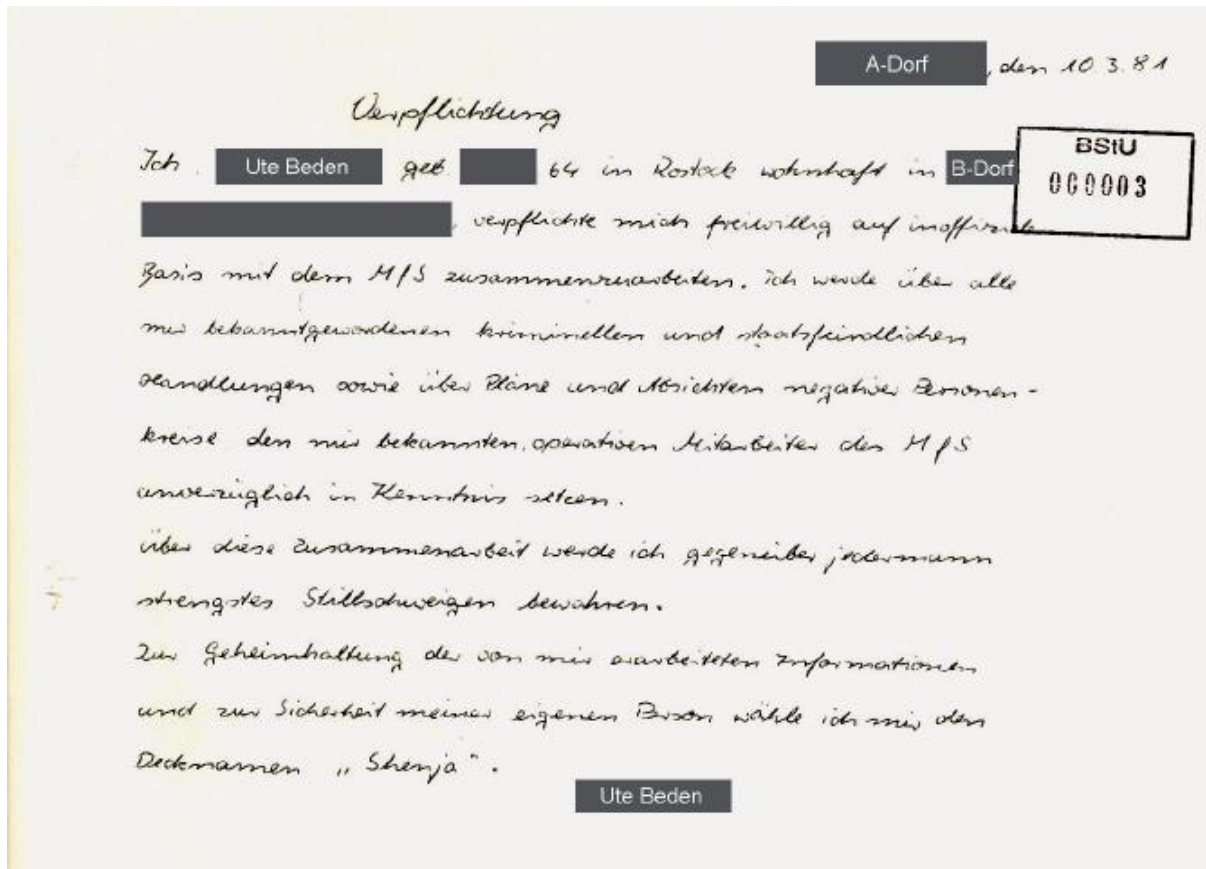 A-Dorf , den 10.3.81
Verpflichtung
Ich, Ute Beden geb. 64 in Rostock wohnhaft in B-Dorf
BStU
000003
, verpflichte mich freiwillig auf inoffizielle
Basis mit dem MfS zusammenzuarbeiten. Ich werde über alle
mir bekanntgewordenen kriminellen und staatsfeindlichen
Handlungen sowie über Pläne und Absichten negativer Personen-
kreise den mir bekannten, operativen Mitarbeiter des MfS
unverzüglich in Kenntnis setzen.
Über diese Zusammenarbeit werde ich gegenüber jedermann
strengstes Stillschweigen bewahren.
Zur Geheimhaltung der von mir erarbeiteten Informationen
und zur Sicherheit meiner eigenen Person wähle ich mir den
Decknamen „Shenja".
Ute Beden